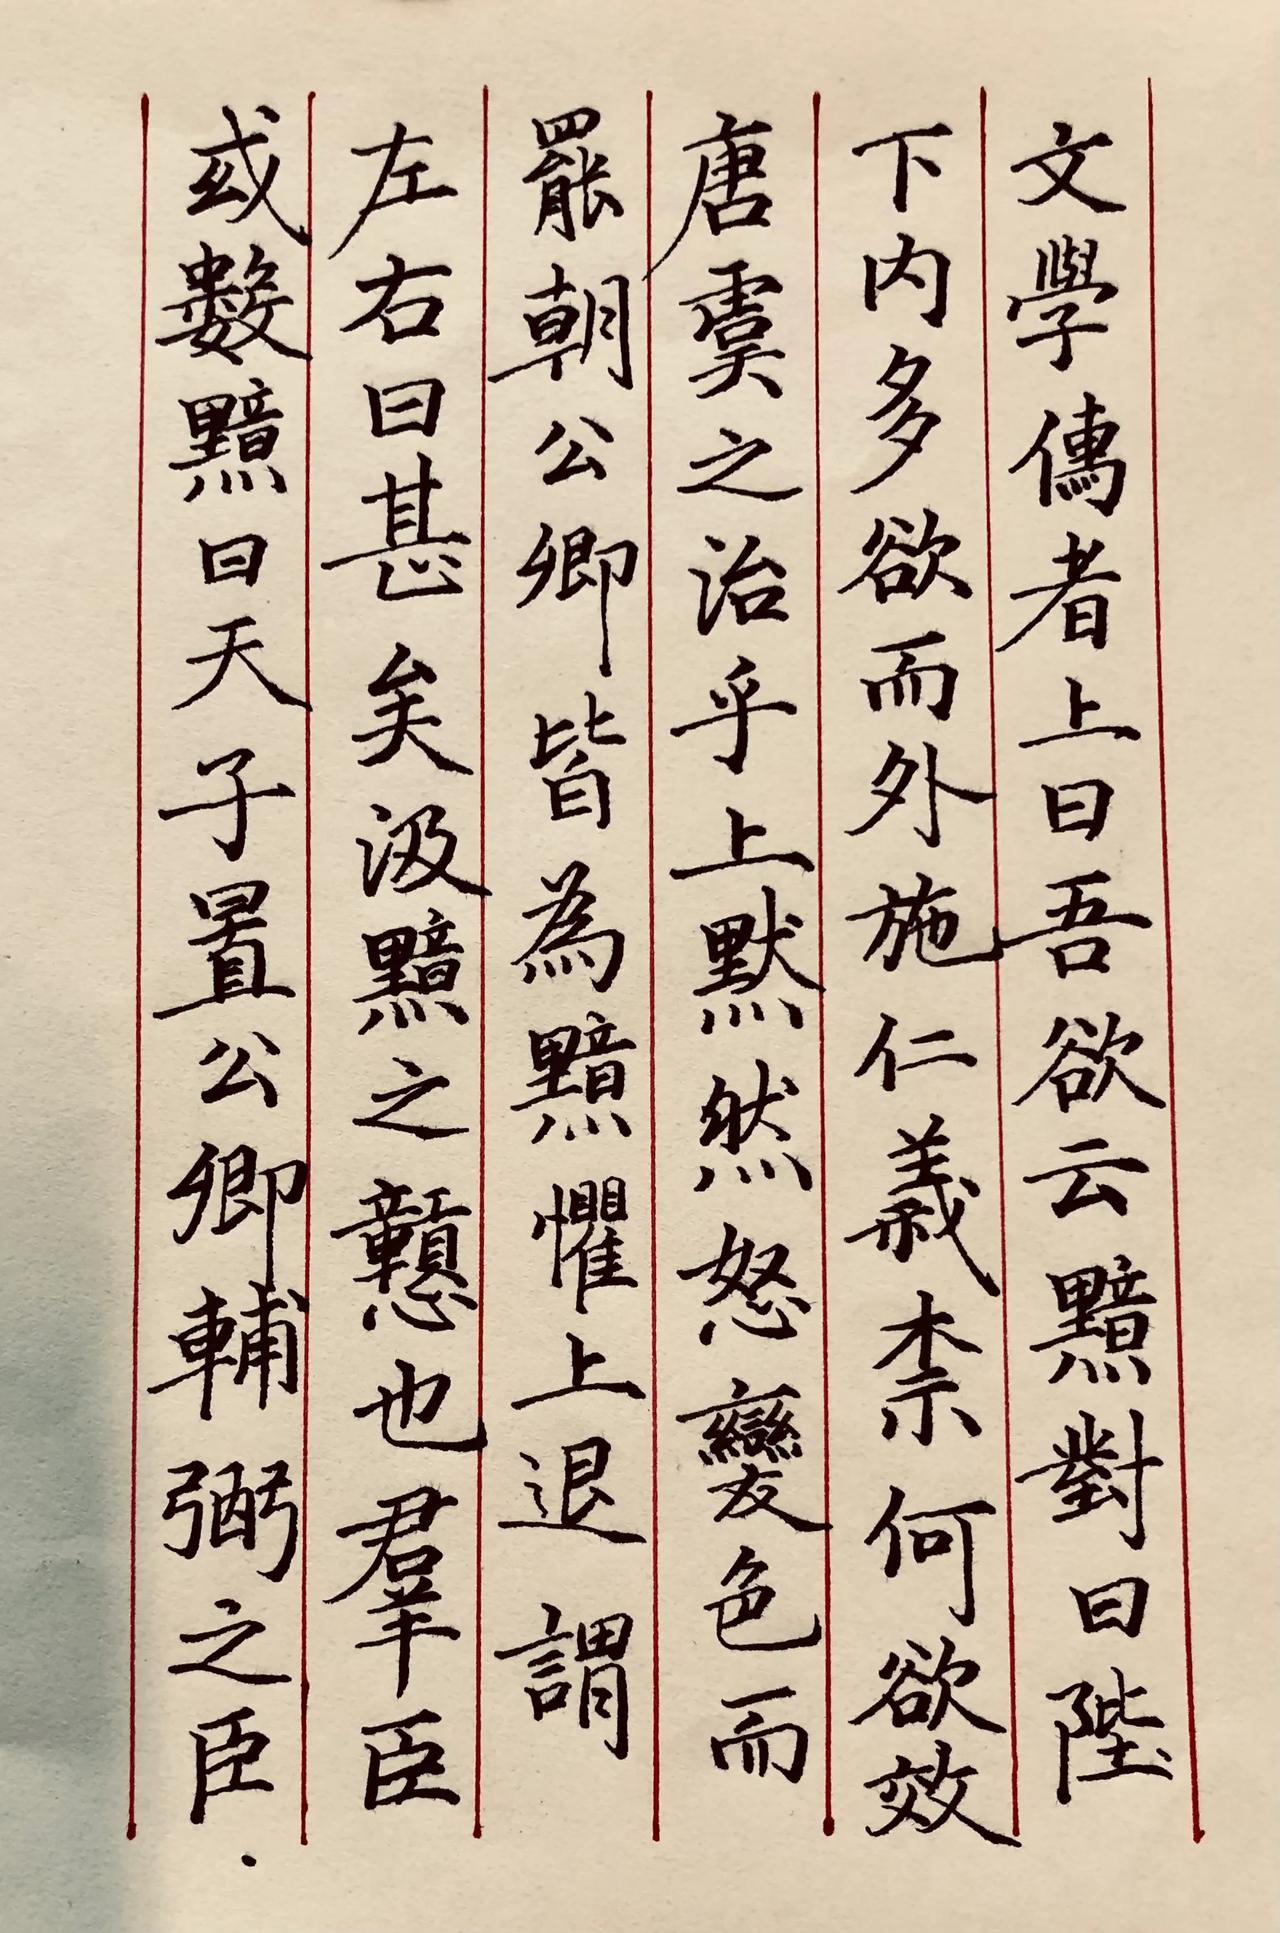 文學儒者上曰吾欲云黯對曰陛
下内多欲而外施仁義柰何欲效
唐虞之治乎上默然怒變色而
罷朝公卿皆為黯懼上退謂
左右曰甚矣汲黯之戇也羣臣
或數黯曰天子置公卿輔弼之臣.